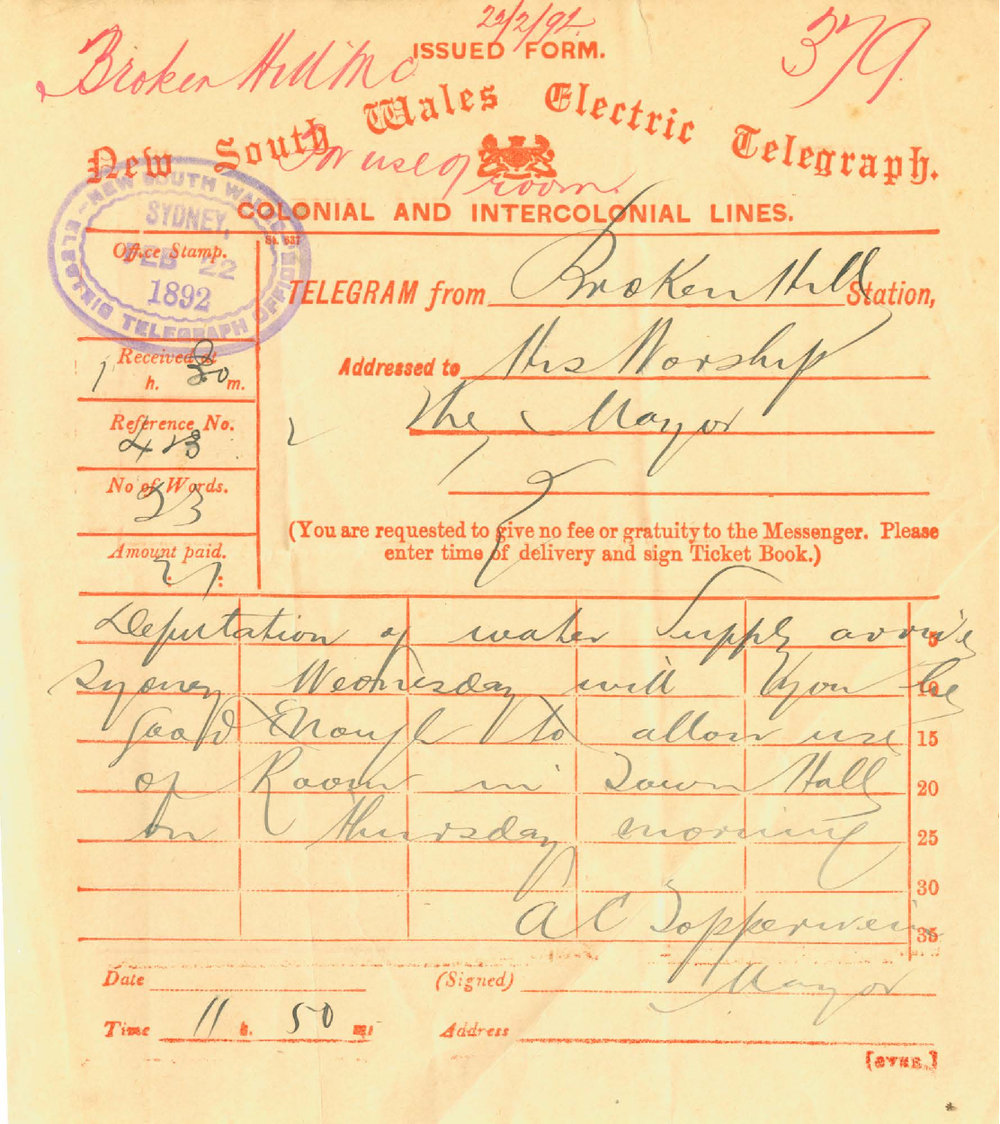 22/2/92
ISSUED FORM.
Broken Hill M C
379.
New South Wales Electric Telegraph.
For use of
room.
COLONIAL AND INTERCOLONIAL LINES.
NEW SOUTH WALES
SYDNEY,
FEB 22
1892
ELECTRIC TELEGRAPH OFFICE
Office Stamp.
TELEGRAM from Broken Hill Station,
Received at
1 h. 30 m.
Addressed to His Worship
The Mayor
Reference No.
No of Words.
33
(You are requested to give no fee or gratuity to the Messenger. Please
enter time of delivery and sign Ticket Book.)
Amount paid.
2/
Deputation of water Supply arrive 5
Sydney Wednesday will you be 10
good Enough to allow use 15
of Room in Town Hall 20
on Thursday morning 25
30
A C Topperwein 35
Date
(Signed) Mayor
Time 11 h. 50 m.
Address
[OVER.]